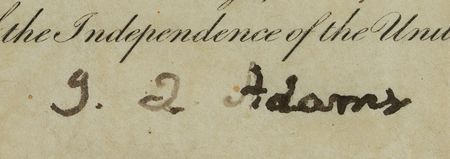 the Independence of the Uni
J. Q Adams